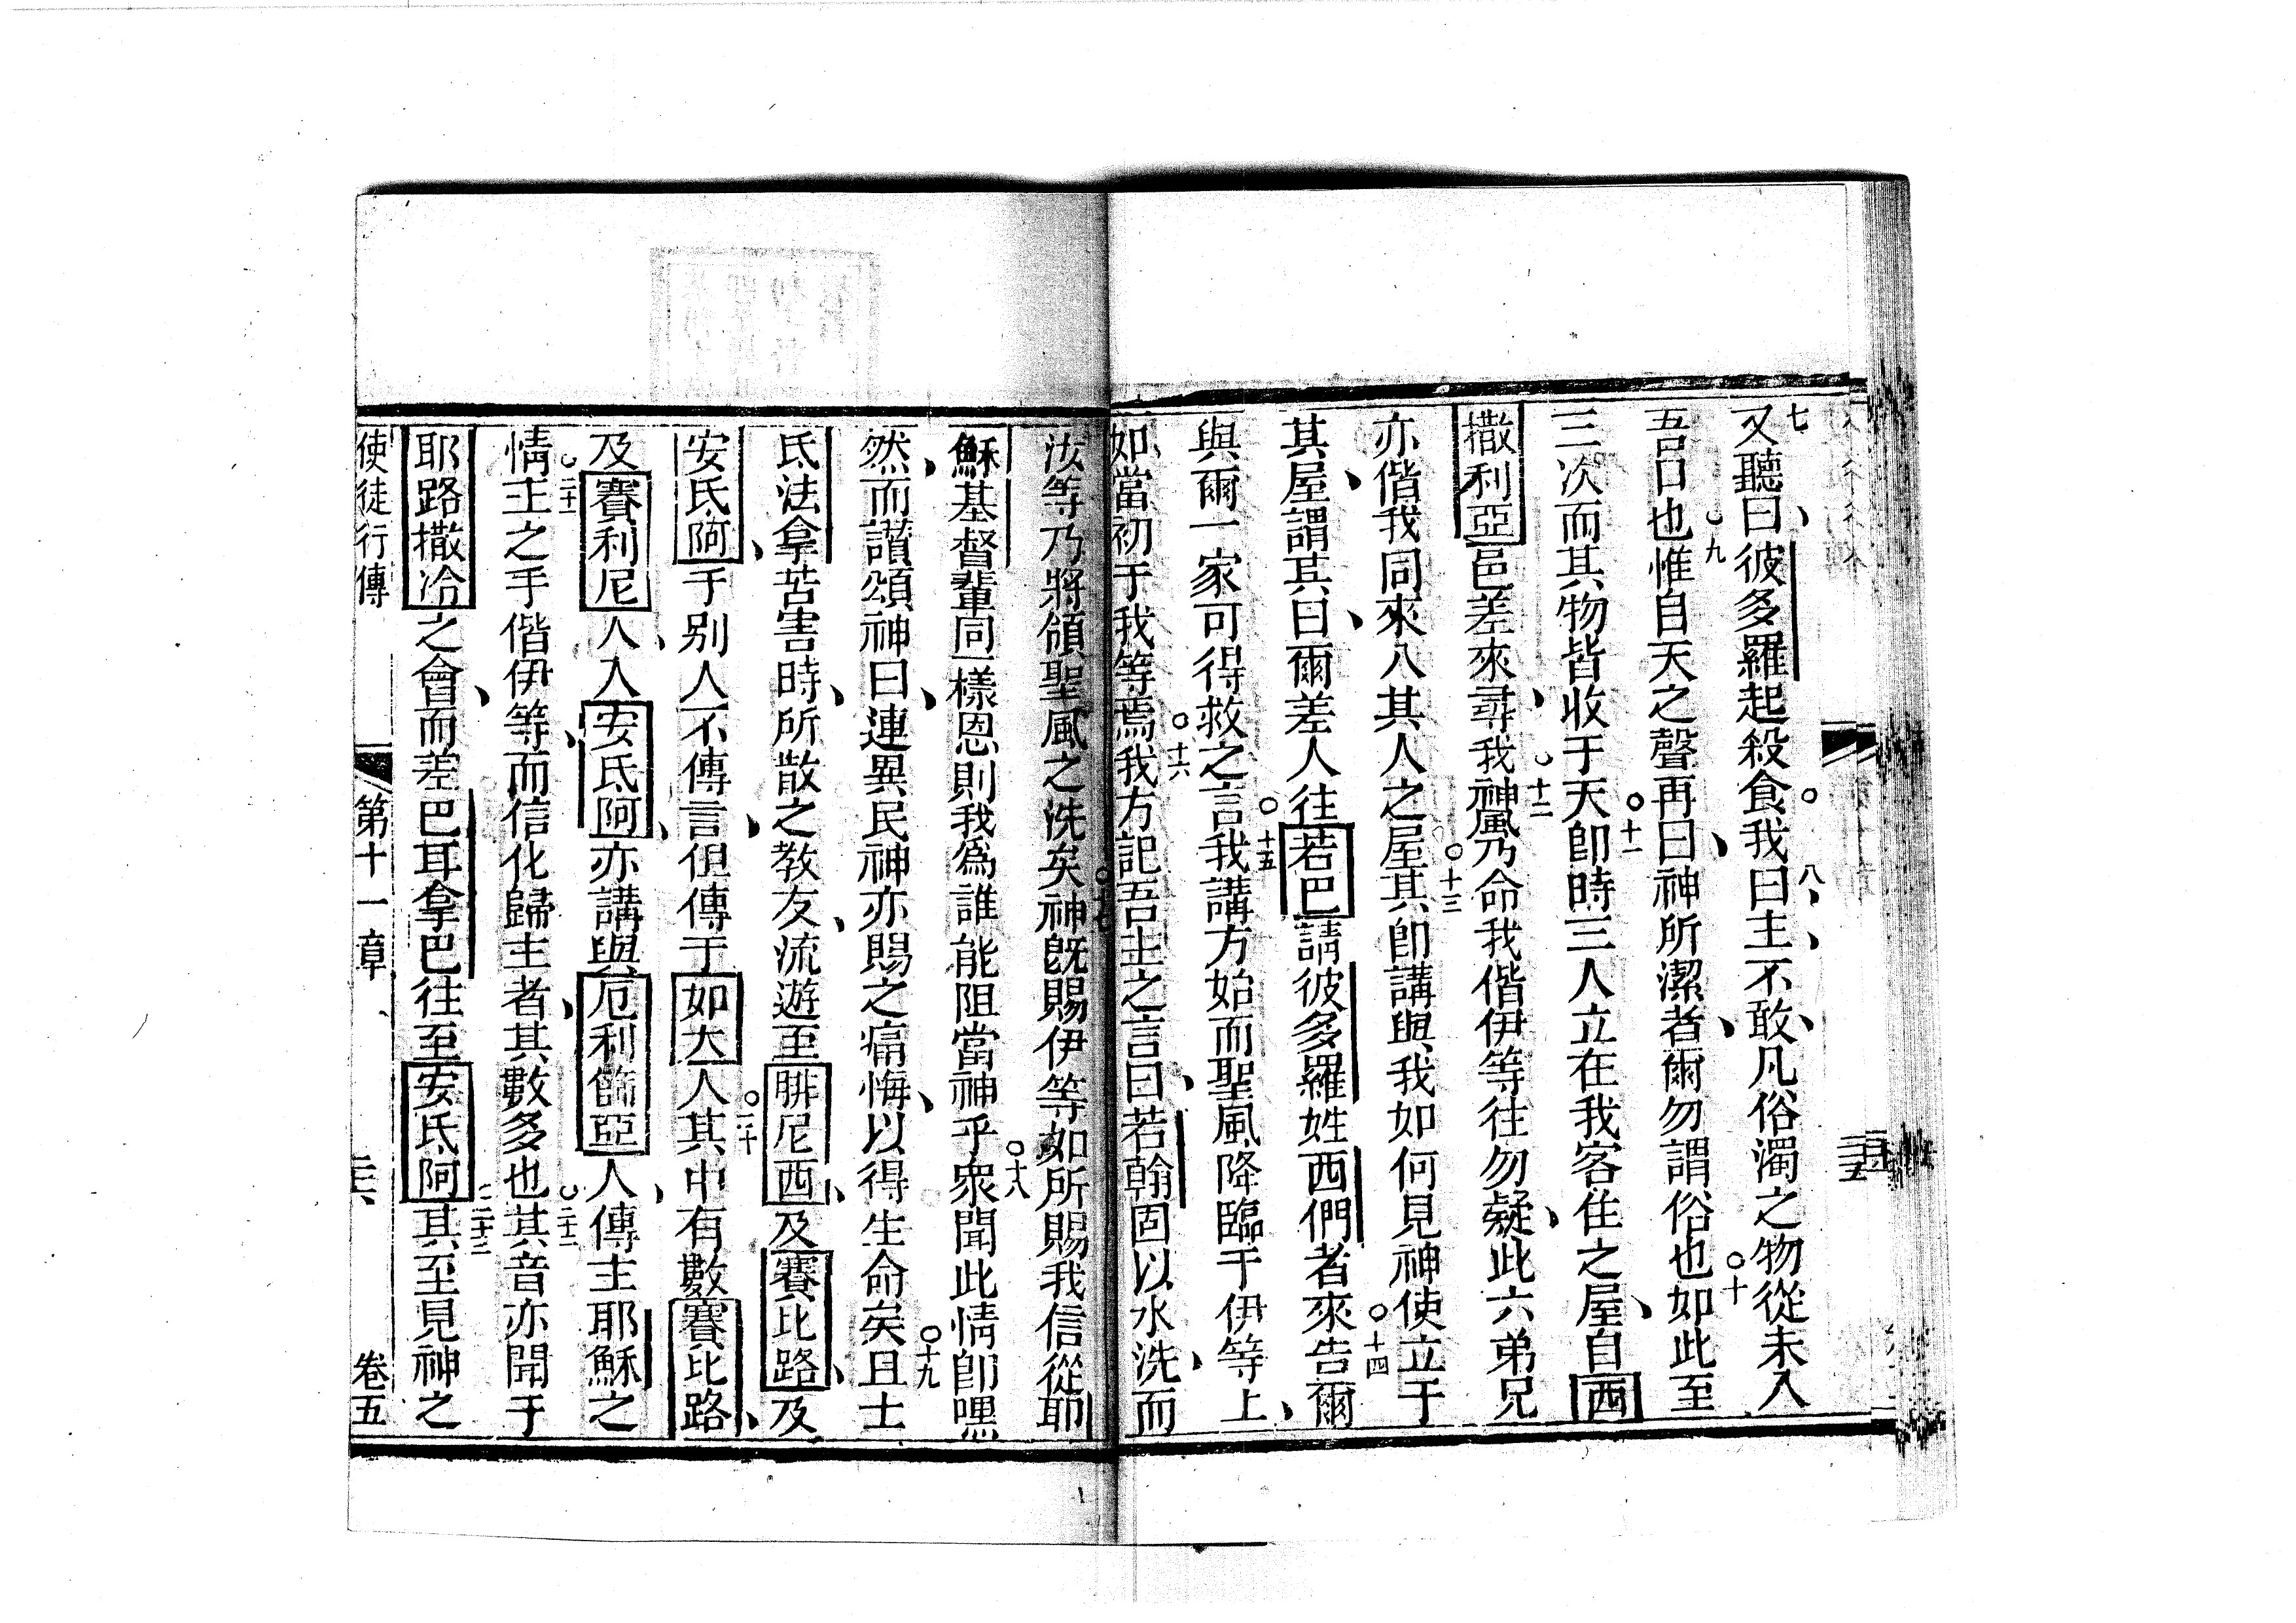 七又聽曰、彼多羅起殺食。八我曰、主、不敢、凡俗濁之物從未入
吾口也。九惟自天之聲再曰、神所潔者、爾勿謂俗也。十如此至
三次而其物皆收于天。十一卽時三人立在我客住之屋、自西
撒利亞邑差來尋我、十二神風乃命我偕伊等往勿疑、此六弟兄
亦偕我同來入其人之屋。十三其卽講與我如何見神使立于
其屋、謂其曰、爾差人往若巴請彼多羅姓西們者來。十四告爾
與爾一家可得救之言。十五我講方始而聖風降臨于伊等上、
如當初于我等焉。十六我方記吾主之言曰、若翰固以水洗、而
汝等乃將領聖風之洗矣。十七神旣賜伊等如所賜我信從耶
穌基督輩同一樣恩則我爲誰能阻當神乎。十八衆聞此情卽嘿
然、而讚頌神曰、連異民神亦賜之痛悔、以得生命矣。十九且士
氐法拿苦害時、所散之教友、流遊至腓尼西、及賽比路、及
安氐阿、于別人不傳言、但傳于如大人。二十其中有數賽比路、
及賽利尼人、入安氐阿、亦講與厄利篩亞人、傳主耶穌之
情。二十一主之手偕伊等、而信化歸主者、其數多也。二十二其音亦聞于
耶路撒冷之會、而差巴耳拿巴往至安氐阿。二十三其至見神之
使徒行傳 第十一章 卷五